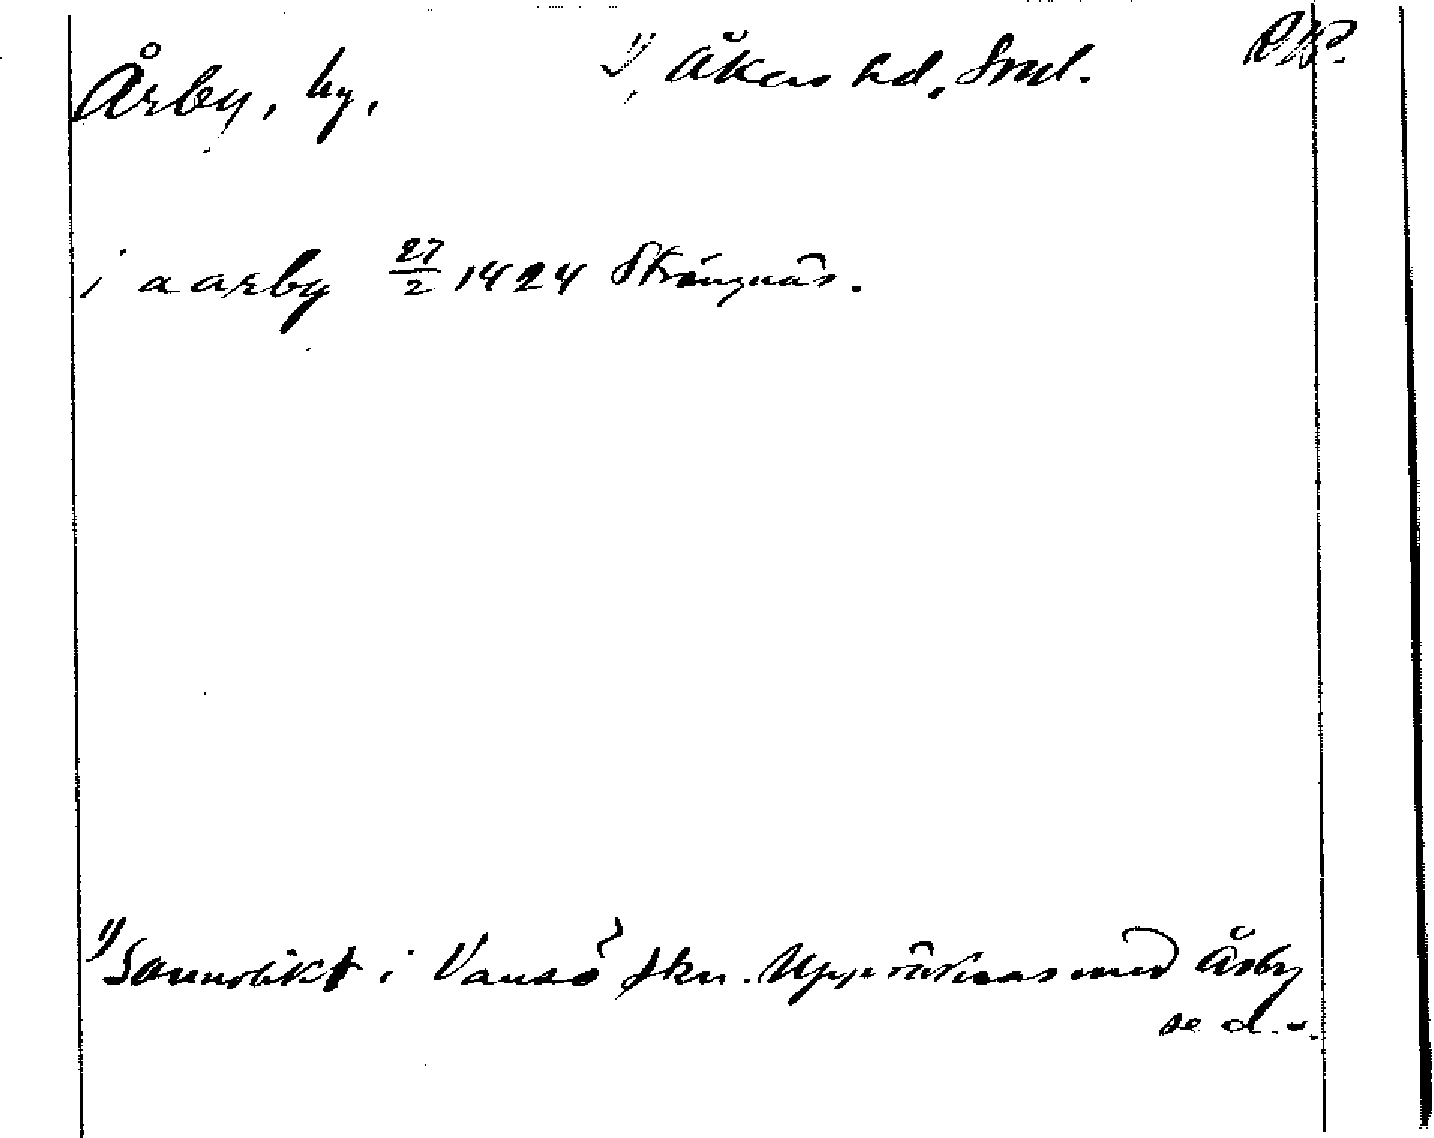 Årby, by, 1), Åkers hd, Sml. RB?
i aarby 27/2 1424 Strängnäs.
1) Sannolikt i Vansö skn. Uppräknas med Åsby
se d.o.